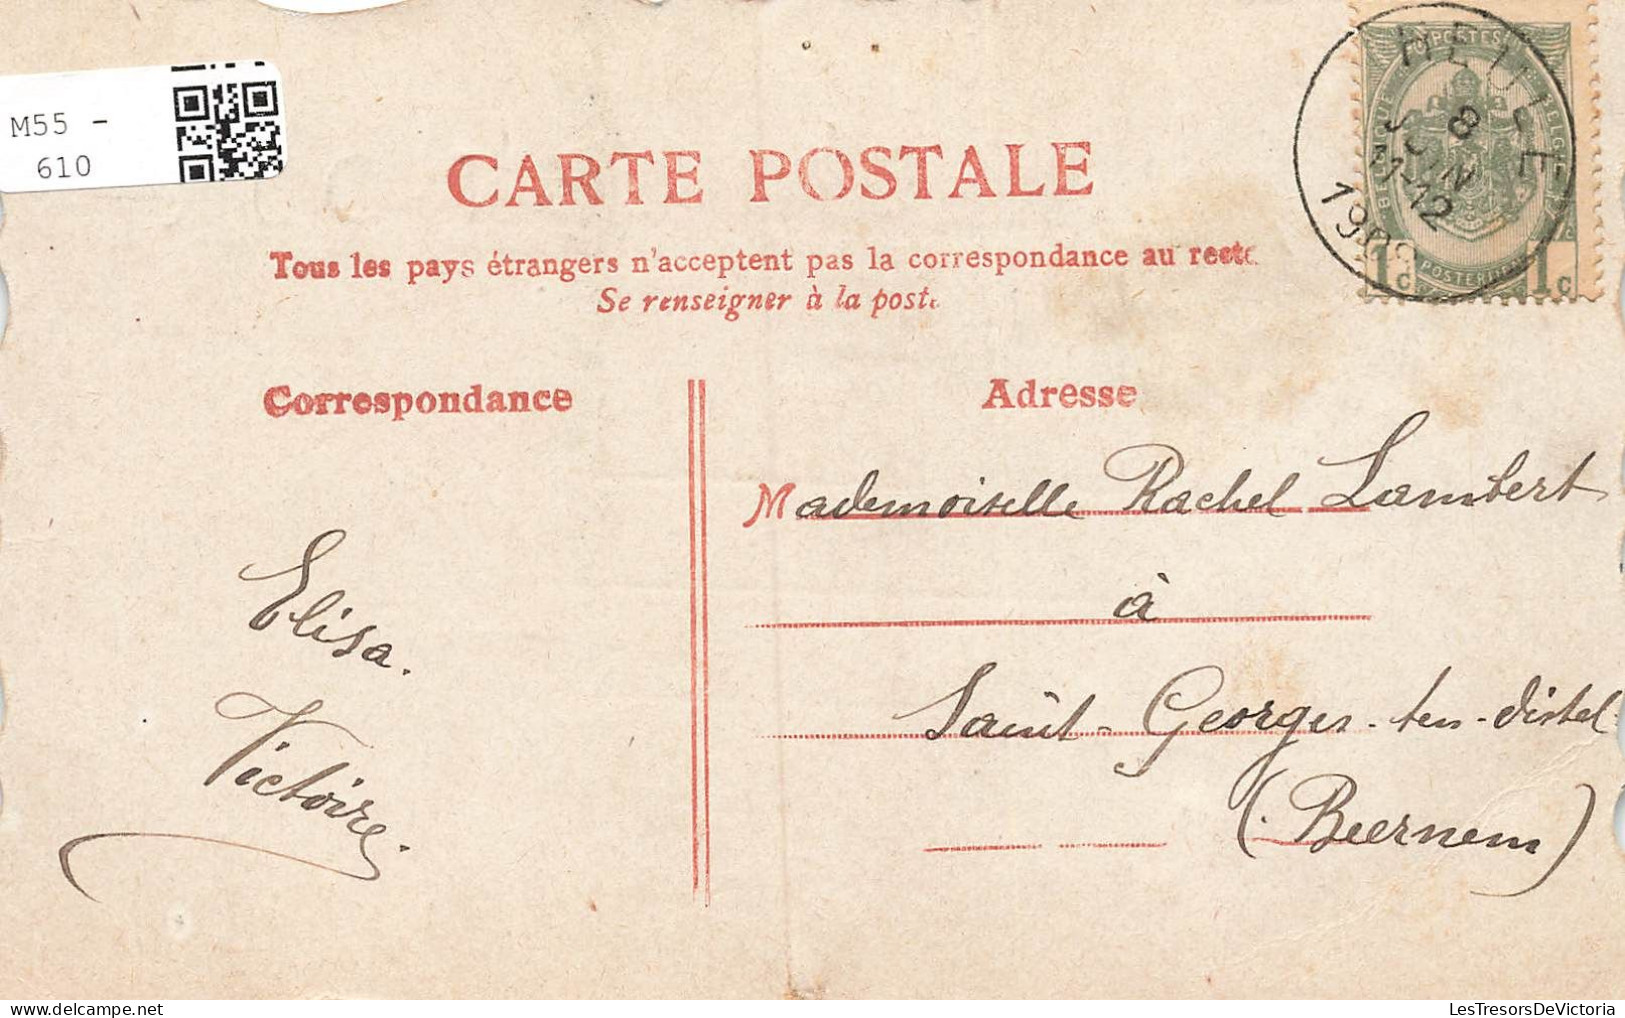 M55 -
610
CARTE POSTALE
Tous les pays étrangers n'acceptent pas la correspondance au recto
Se renseigner à la poste
Correspondance
Adresse
HEULE
8
JUIN
11-12
POSTES
BELGIQUE
BELGIË
1c
1c
Mademoiselle Rachel Lambert
à
Saint-Georges-ten-distel
(Beernem)
Elisa.
Victoire.
LesTresorsDeVictoria.com